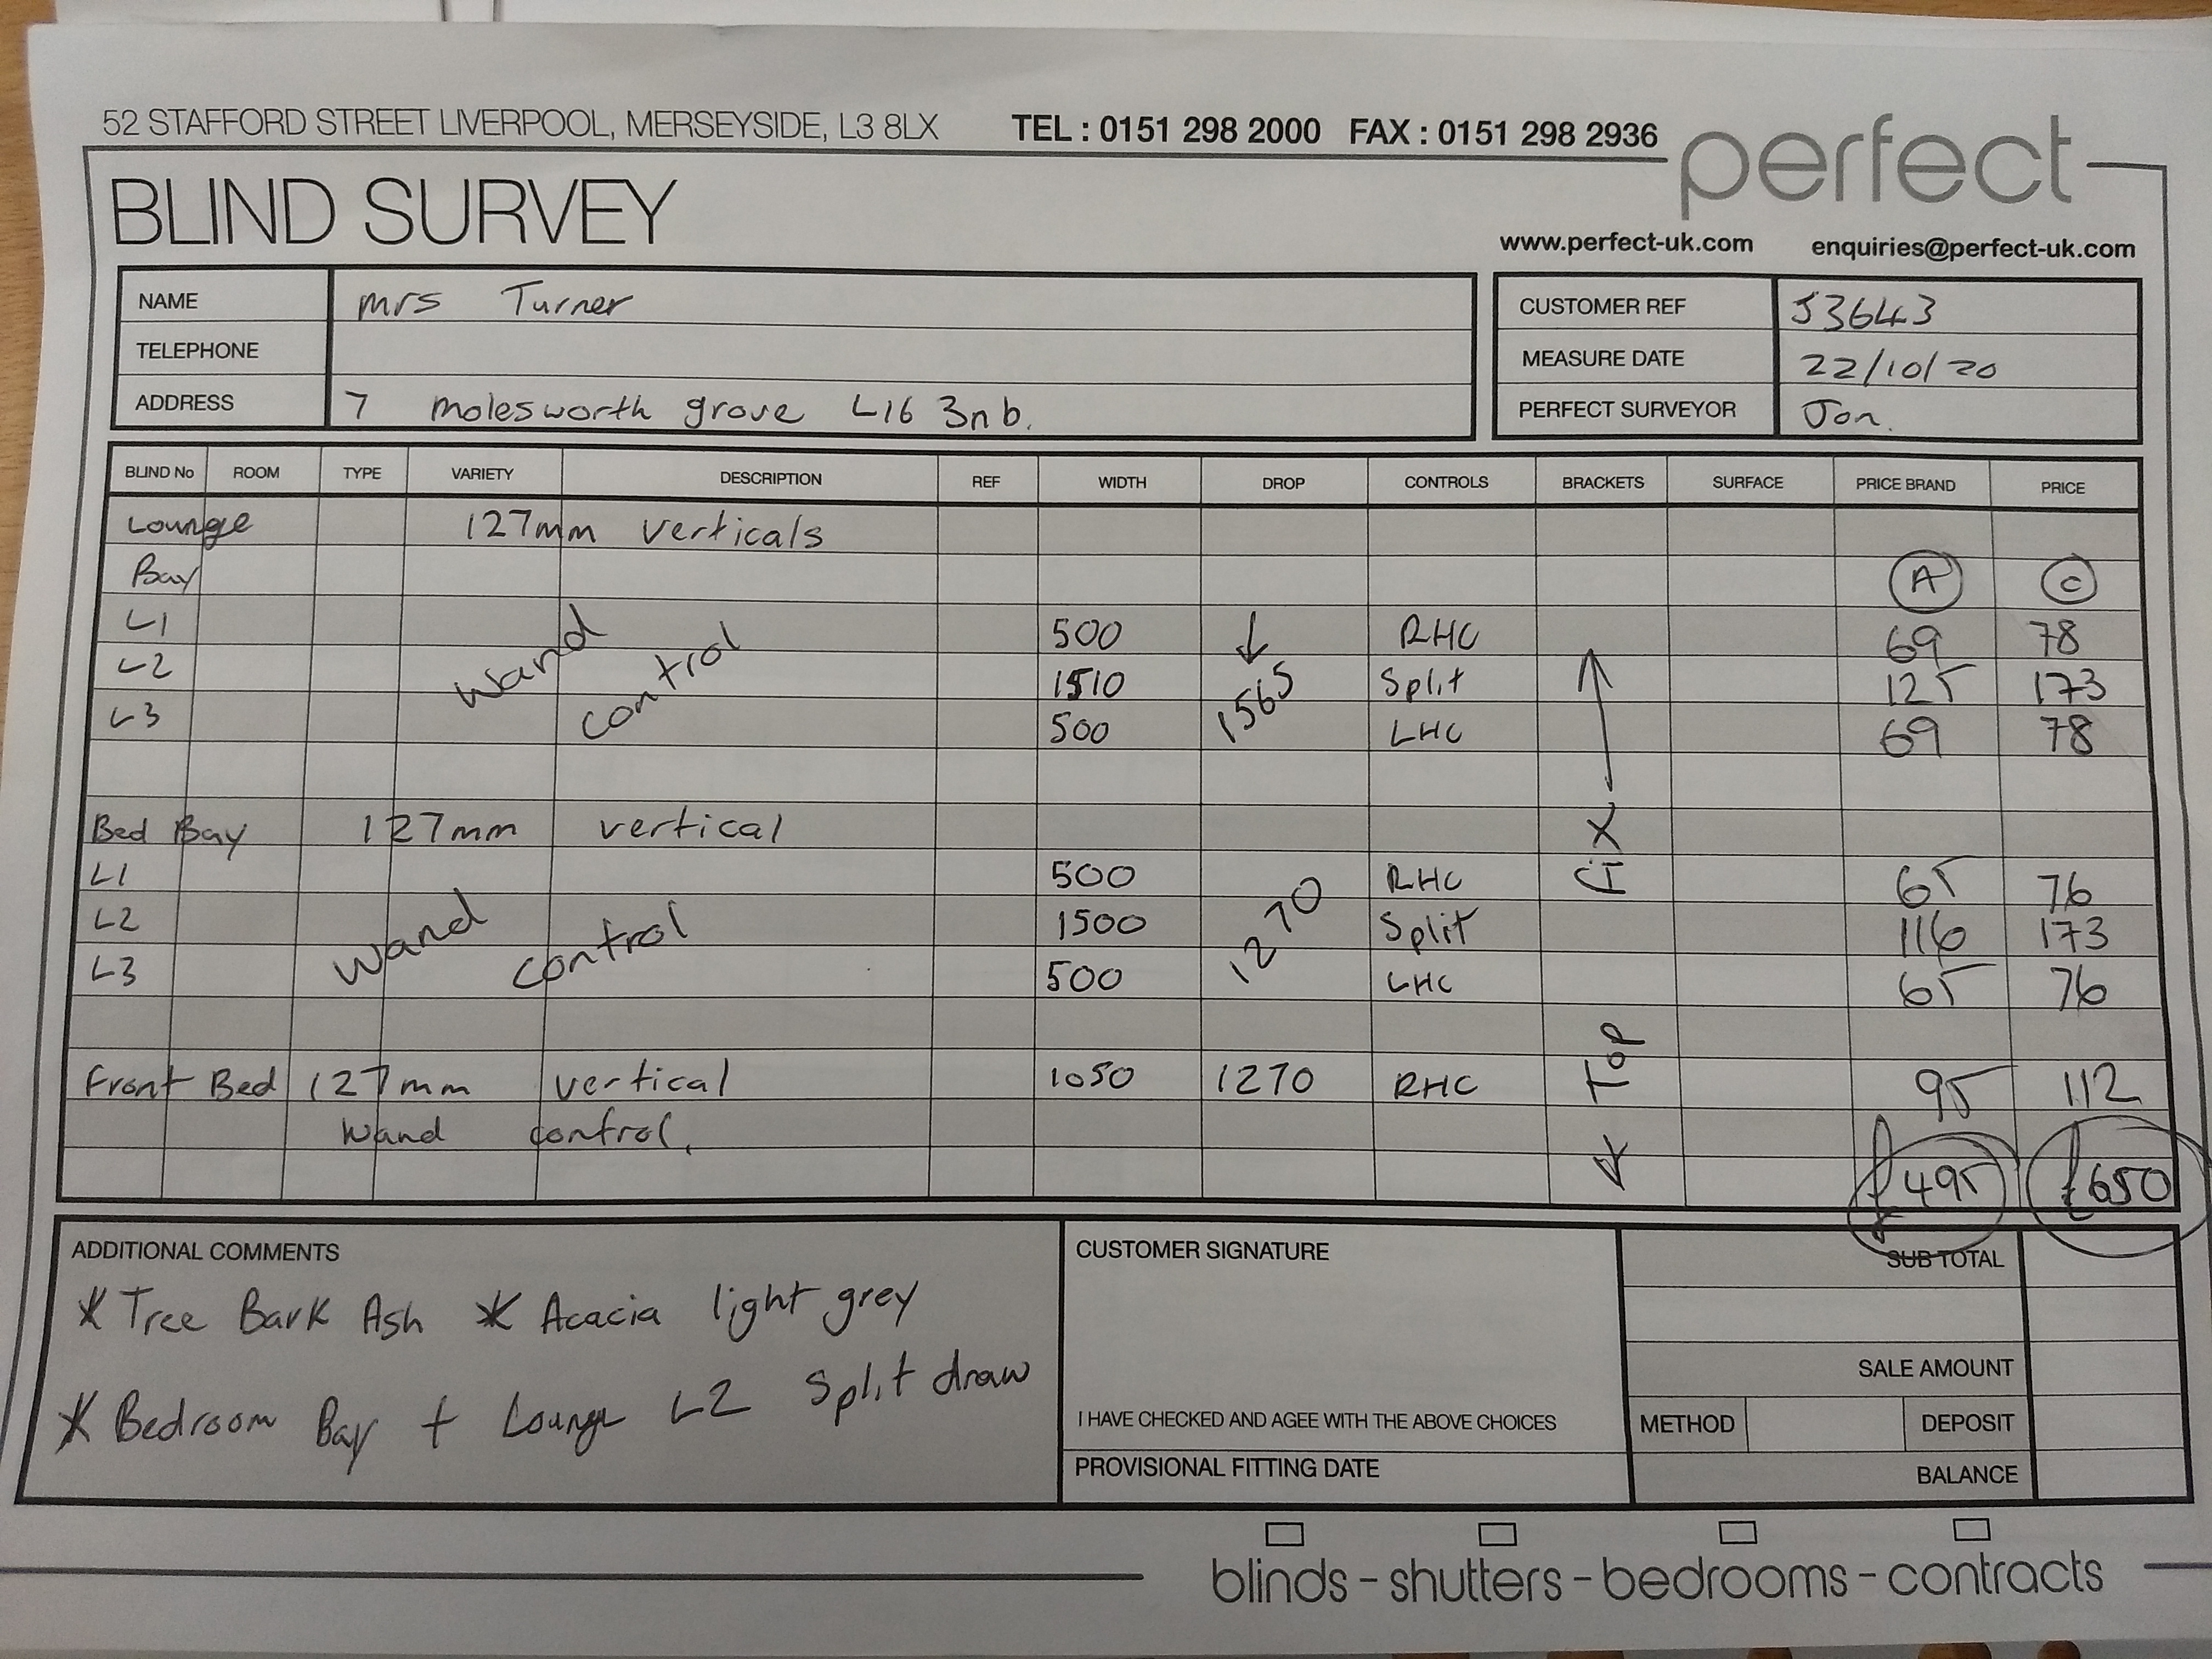 52 STAFFORD STREET LIVERPOOL, MERSEYSIDE, L3 8LX TEL : 0151 298 2000 FAX : 0151 298 2936
perfect
BLIND SURVEY
www.perfect-uk.com enquiries@perfect-uk.com
NAME Mrs Turner
CUSTOMER REF J3643
TELEPHONE
MEASURE DATE 22/10/20
ADDRESS 7 molesworth grove L16 3nb.
PERFECT SURVEYOR Jon.
BLIND No ROOM TYPE VARIETY DESCRIPTION REF WIDTH DROP CONTROLS BRACKETS SURFACE PRICE BRAND PRICE
Lounge 127mm verticals
Bay A C
L1 500 RHC 69 78
L2 Wand control 1510 1565 Split 125 173
L3 500 LHC 69 78
Bed Bay 127mm vertical Fix
L1 500 RHC 65 76
L2 Wand control 1500 1270 Split 116 173
L3 500 LHC 65 76
Top
Front Bed 127mm vertical 1050 1270 RHC 95 112
Wand control.
£495 £650
ADDITIONAL COMMENTS
* Tree Bark Ash * Acacia light grey
* Bedroom Bay + Lounge L2 Split draw
CUSTOMER SIGNATURE
I HAVE CHECKED AND AGEE WITH THE ABOVE CHOICES
PROVISIONAL FITTING DATE
SUB TOTAL
SALE AMOUNT
METHOD DEPOSIT
BALANCE
blinds - shutters - bedrooms - contracts